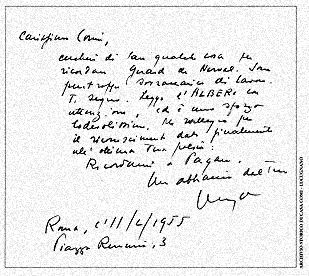 Carissimo Comi,
cercherò di fare qualche cosa per
ricordare Gérard de Nerval. Sono
purtroppo sovraccarico di lavoro.
Ti seguo. Leggo l'ALBERO con
attenzione, ed è uno sforzo
lodevolissimo. Mi rallegro per
il riconoscimento dato finalmente
alla ottima Tua poesia.
Ricordami a Pagano.
Un abbraccio dal tuo
Roma, l'11/2/1955
Piazza Remuria, 3
ARCHIVIO STORICO DUCANA COMI - LUCUGNANO